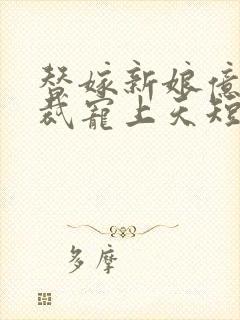 替嫁新娘億
裁寵上天短
多摩